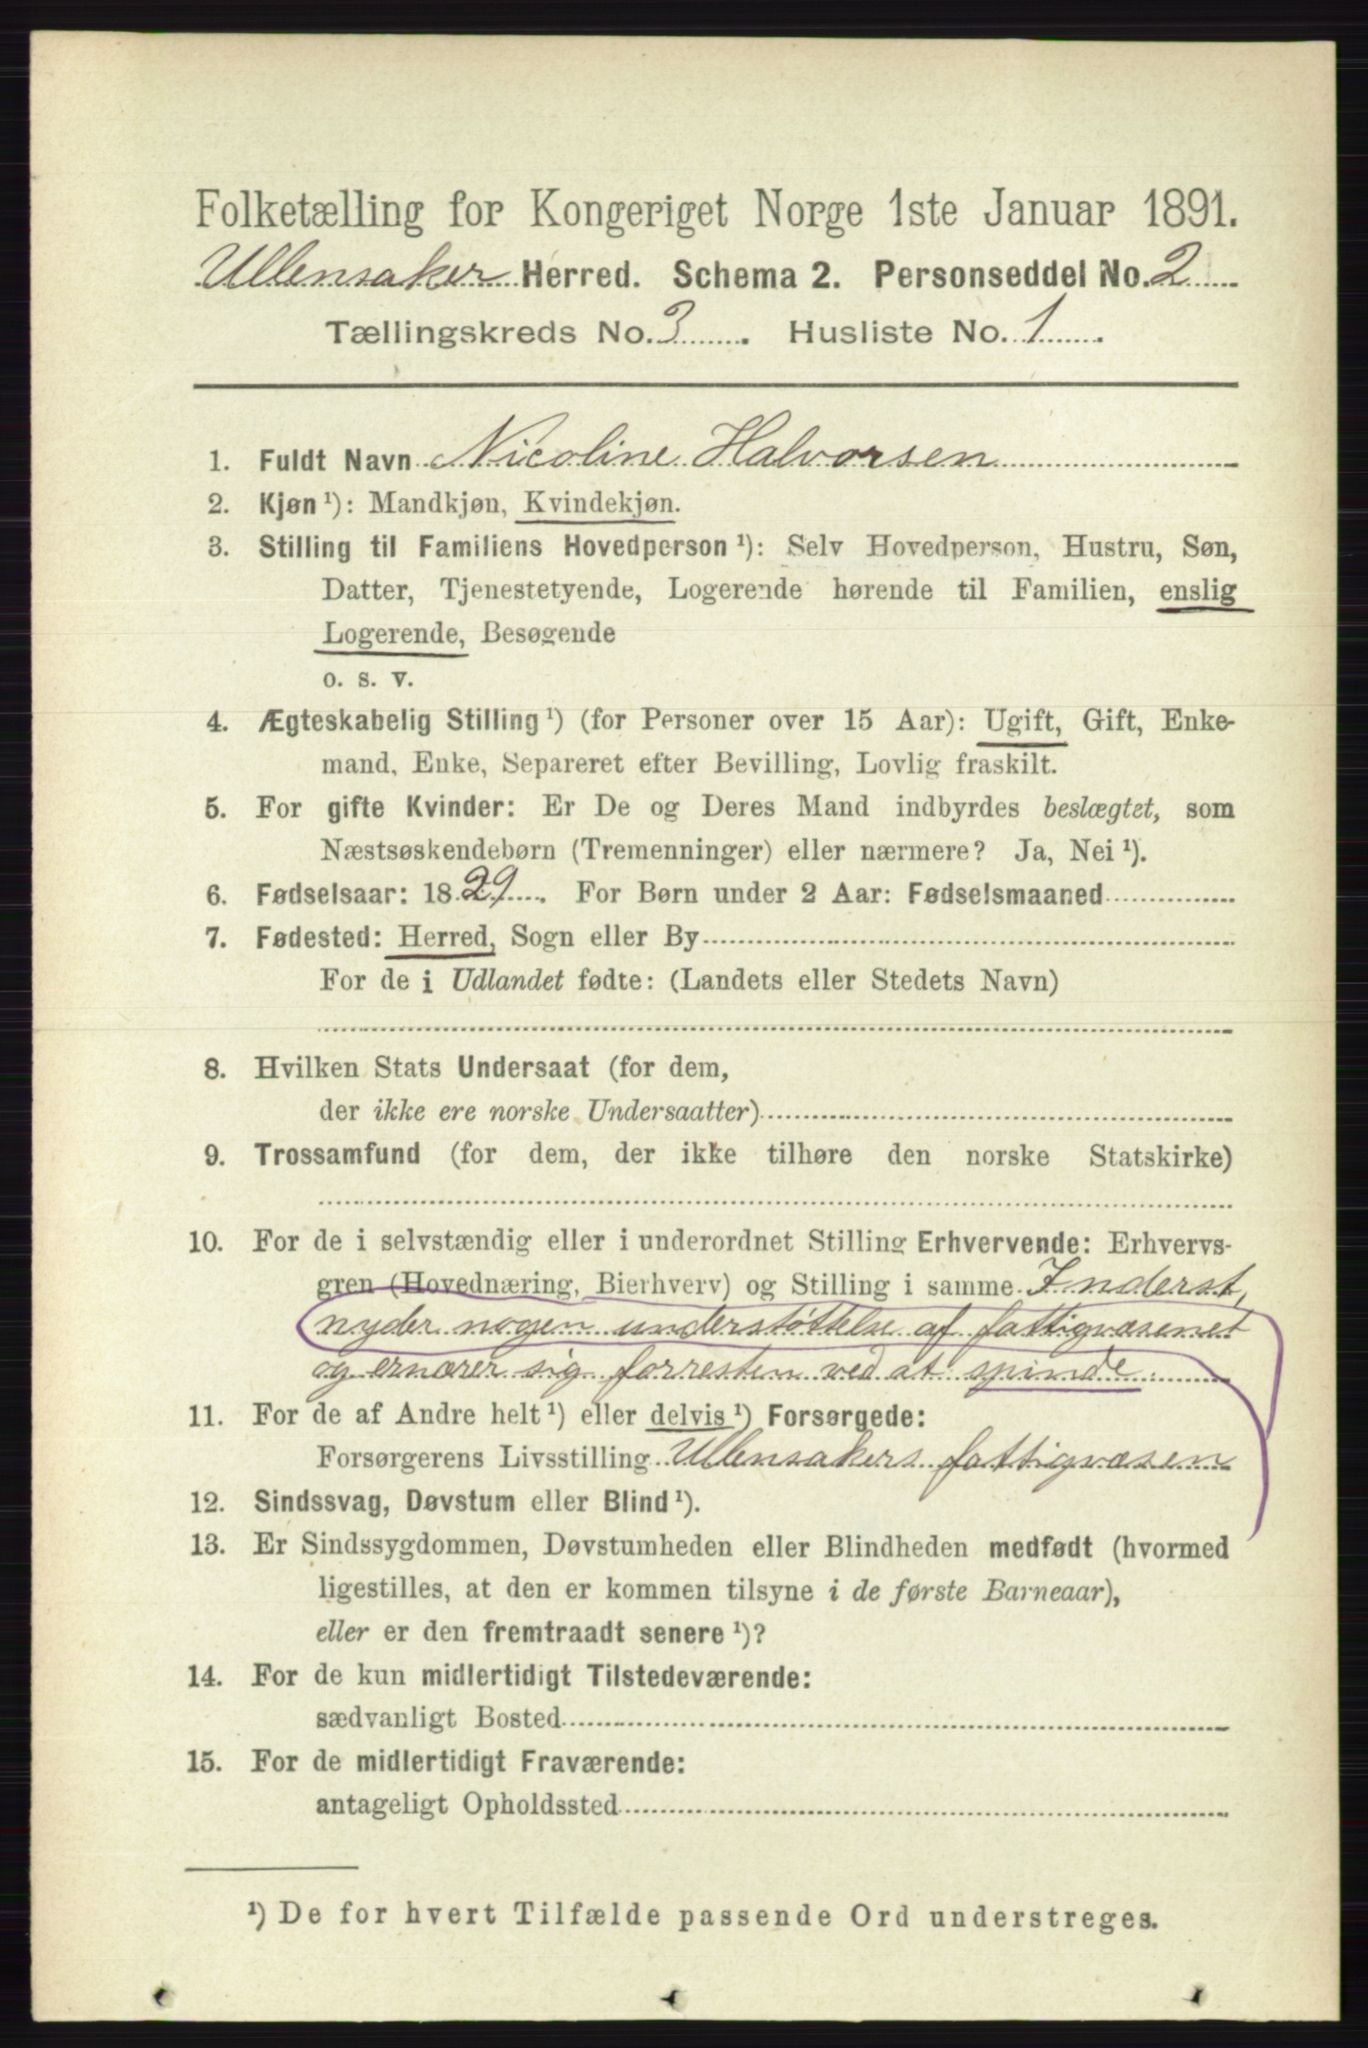 Folketælling for Kongeriget Norge 1ste Januar 1891.
Ullensaker Herred. Schema 2. Personseddel No. 2
Tællingskreds No. 3. Husliste No. 1.
1. Fuldt Navn Nicoline Halvorsen
2. Kjøn ¹): Mandkjøn, Kvindekjøn.
3. Stilling til Familiens Hovedperson ¹): Selv Hovedperson, Hustru, Søn,
Datter, Tjenestetyende, Logerende hørende til Familien, enslig
Logerende, Besøgende
o. s. v.
4. Ægteskabelig Stilling ¹) (for Personer over 15 Aar): Ugift, Gift, Enke-
mand, Enke, Separeret efter Bevilling, Lovlig fraskilt.
5. For gifte Kvinder: Er De og Deres Mand indbyrdes beslægtet, som
Næstsøskendebørn (Tremenninger) eller nærmere? Ja, Nei ¹).
6. Fødselsaar: 1829. For Børn under 2 Aar: Fødselsmaaned
7. Fødested: Herred, Sogn eller By
For de i Udlandet fødte: (Landets eller Stedets Navn)
8. Hvilken Stats Undersaat (for dem,
der ikke ere norske Undersaatter)
9. Trossamfund (for dem, der ikke tilhøre den norske Statskirke)
10. For de i selvstændig eller i underordnet Stilling Erhvervende: Erhvervs-
gren (Hovednæring, Bierhverv) og Stilling i samme Inderst,
nyder nogen understøttelse af fattigvæsenet
og ernærer sig forresten ved at spinde.
11. For de af Andre helt ¹) eller delvis ¹) Forsørgede:
Forsørgerens Livsstilling Ullensakers fattigvæsen
12. Sindssvag, Døvstum eller Blind ¹).
13. Er Sindssygdommen, Døvstumheden eller Blindheden medfødt (hvormed
ligestilles, at den er kommen tilsyne i de første Barneaar),
eller er den fremtraadt senere ¹)?
14. For de kun midlertidigt Tilstedeværende:
sædvanligt Bosted
15. For de midlertidigt Fraværende:
antageligt Opholdssted
¹) De for hvert Tilfælde passende Ord understreges.